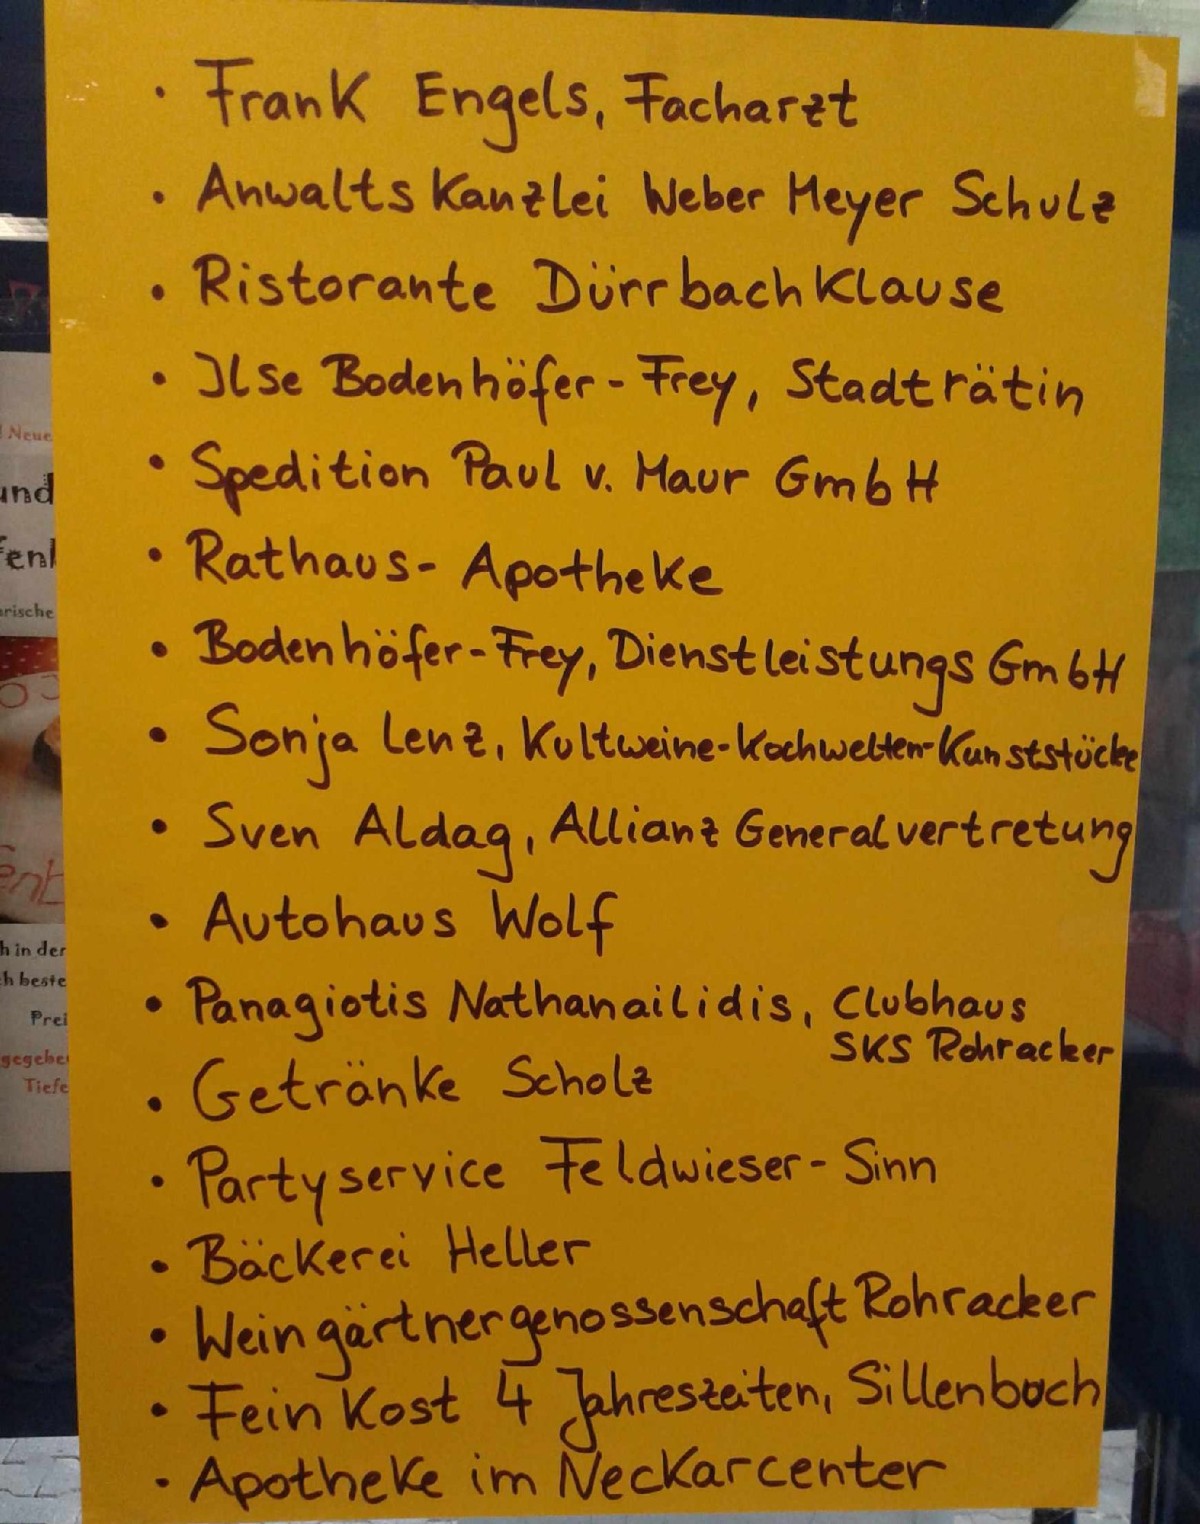 • Frank Engels, Facharzt
• Anwaltskanzlei Weber Meyer Schulz
• Ristorante Dürrbachklause
• Ilse Bodenhöfer-Frey, Stadträtin
• Spedition Paul v. Maur GmbH
• Rathaus-Apotheke
• Bodenhöfer-Frey, Dienstleistungs GmbH
• Sonja Lenz, Kultweine-Kochwelten-Kunststücke
• Sven Aldag, Allianz Generalvertretung
• Autohaus Wolf
• Panagiotis Nathanailidis, Clubhaus
SKS Rohracker
• Getränke Scholz
• Partyservice Feldwieser-Sinn
• Bäckerei Heller
• Weingärtnergenossenschaft Rohracker
• Feinkost 4 Jahreszeiten, Sillenbuch
• Apotheke im Neckarcenter
Neue
und
arische
h in der
h beste
Prei
gegebe
Tiefe